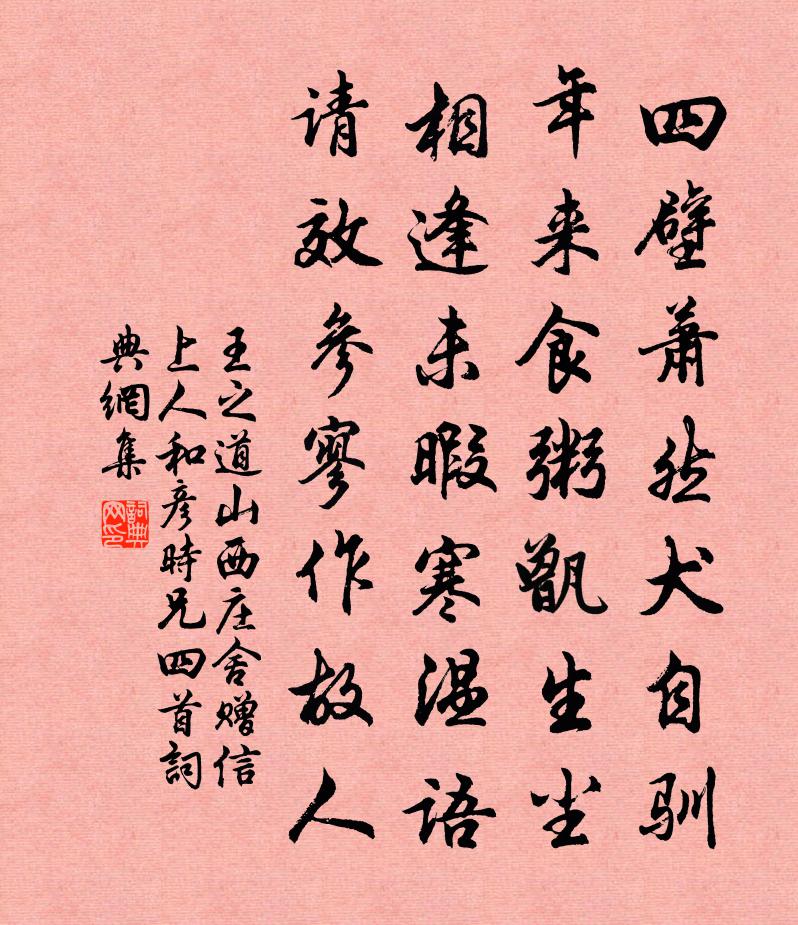 四壁萧然犬自驯
年来食粥甑生尘
相逢未暇寒温语
请效参寥作故人
王之道山西庄舍赠信
上人和彦時兄四首詞
典網集
詞典网印